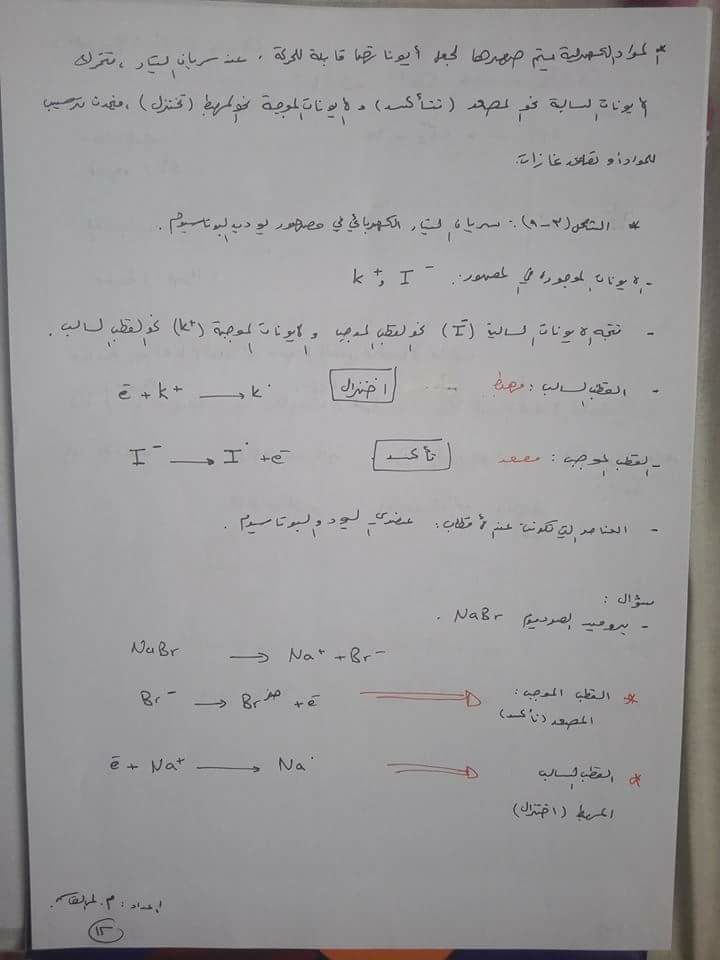 * المواد الكهرلية يتم صهرها لجعل أيوناتها قابلة للحركة ، عند سريان التيار ، تتحرك
الايونات السالبة نحو المصعد (تتأكسد) و الايونات الموجبة نحو المهبط (تختزل) ، فيحدث ترسيب
للمواد أو تصاعد غازات.
* الشكل (٣-٩): سريان التيار الكهربائي في مصهور يوديد البوتاسيوم .
- الايونات الموجودة في المصهور: K⁺ و I⁻
- تتجه الايونات السالبة (I⁻) نحو القطب الموجب و الايونات الموجبة (K⁺) نحو القطب السالب .
- القطب السالب : مهبط ..... اختزال ē + K⁺ → K·
- القطب الموجب : مصعد تأكسد I⁻ → I· + ē
- العناصر التي تكونت عند الأقطاب: عنصري اليود و البوتاسيوم .
سؤال :
- بروميد الصوديوم NaBr .
NaBr → Na⁺ + Br⁻
* القطب الموجب : Br⁻ → Br + ē
المصعد (تأكسد)
* القطب السالب ē + Na⁺ → Na·
المهبط (اختزال)
إعداد : م.
١٢